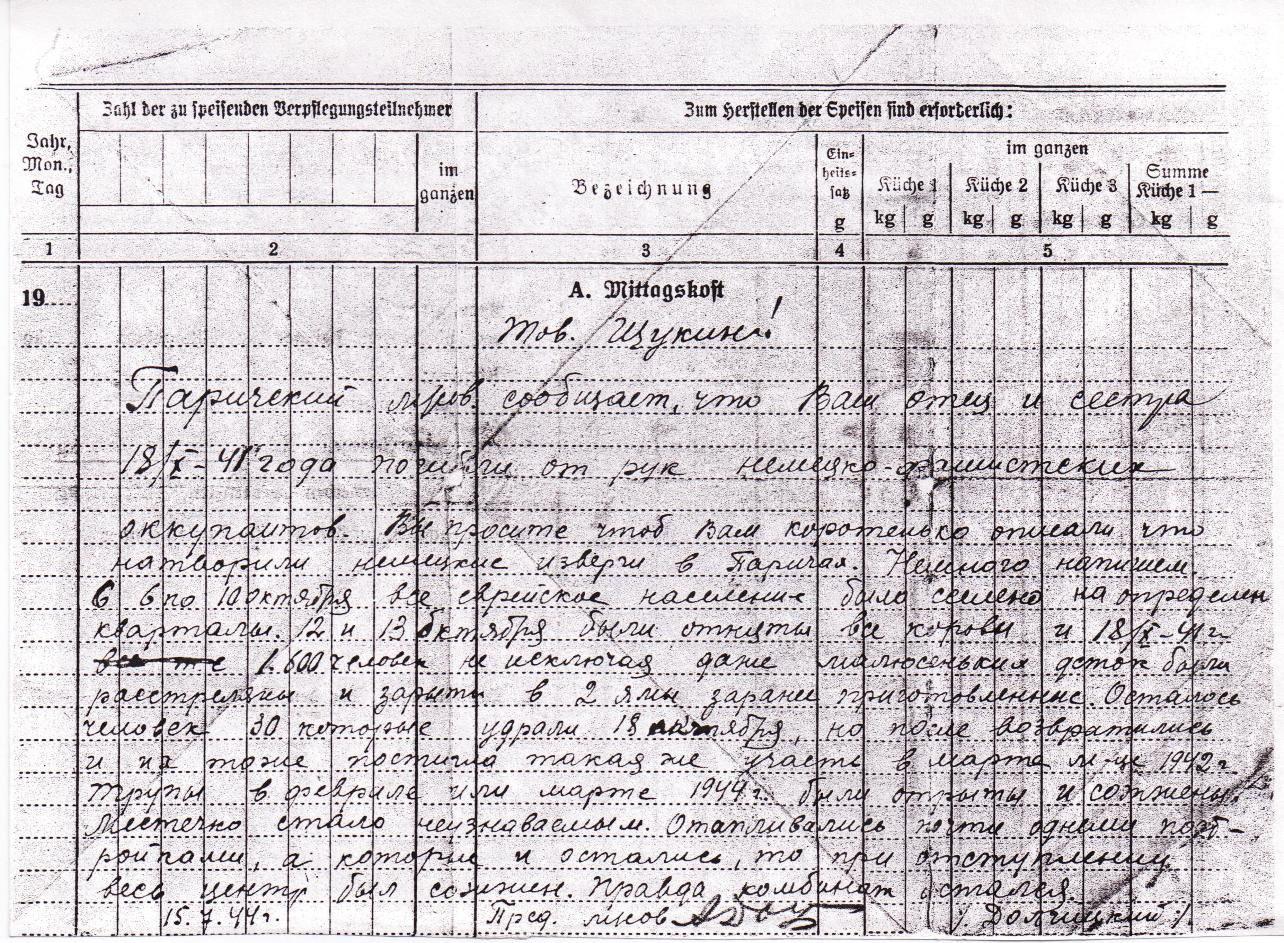 Zahl der zu speisenden Verpflegungsteilnehmer
Zum Herstellen der Speisen sind erforderlich:
Jahr, Mon., Tag
im ganzen
Bezeichnung
Ein=heits=satz g
im ganzen
Küche 1 Küche 2 Küche 3 Summe Küche 1—
kg g kg g kg g kg g
1 2 3 4 5
19
A. Mittagskost
Тов. Щукин!
Паричский сообщает, что Ваш отец и сестра
18/X-41 года погибли от рук немецко-фашистских
оккупантов. Вы просите чтоб Вам коротенько описали что
натворили немецкие изверги в Паричах. Немного напишем.
С 6 по 10 октября все еврейское население было селено на определен
кварталы. 12 и 13 октября были отняты все коровы и 18/X-41г.
1.600 человек не исключая даже малюсеньких деток были
расстреляны и зарыты в 2 ямы заранее приготовленные. Осталось
человек 30 которые удрали 18 октября, но после возвратились
и их тоже постигла такая же участь в марте м-це 1942г.
Трупы в феврале или марте 1944г. были открыты и сожжены.
Местечко стало неузнаваемым. Отапливались почти одними пост-
ройками, а которые и остались, то при отступлении
весь центр был сожжен. Правда комбинат остался.
15.7.44г. Пред. /Долчицкий/.